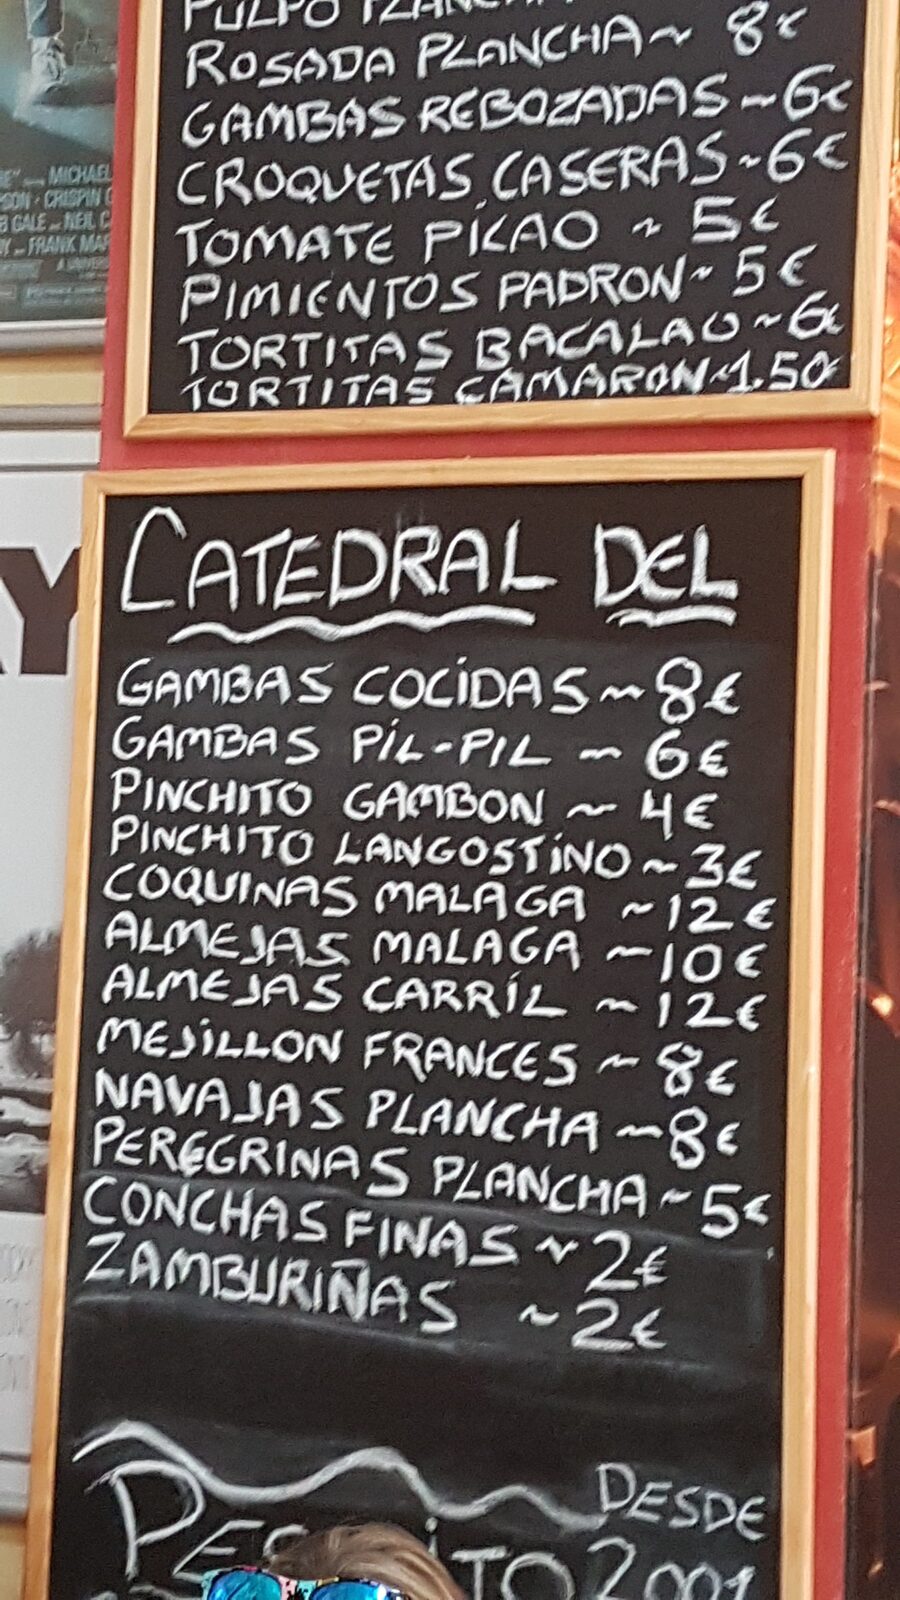 PULPO PLANCHA
ROSADA PLANCHA ~ 8€
GAMBAS REBOZADAS ~ 6€
CROQUETAS CASERAS ~ 6€
TOMATE PICAO ~ 5€
PIMIENTOS PADRON ~ 5€
TORTITAS BACALAO ~ 6€
TORTITAS CAMARON ~ 1.50€
CATEDRAL DEL
GAMBAS COCIDAS ~ 8€
GAMBAS PIL-PIL ~ 6€
PINCHITO GAMBON ~ 4€
PINCHITO LANGOSTINO ~ 3€
COQUINAS MALAGA ~ 12€
ALMEJAS MALAGA ~ 10€
ALMEJAS CARRIL ~ 12€
MEJILLON FRANCES ~ 8€
NAVAJAS PLANCHA ~ 8€
PEREGRINAS PLANCHA ~ 5€
CONCHAS FINAS ~ 2€
ZAMBURIÑAS ~ 2€
DESDE
2001
MICHAEL
CRISPIN
GALE NEIL
FRANK MAR